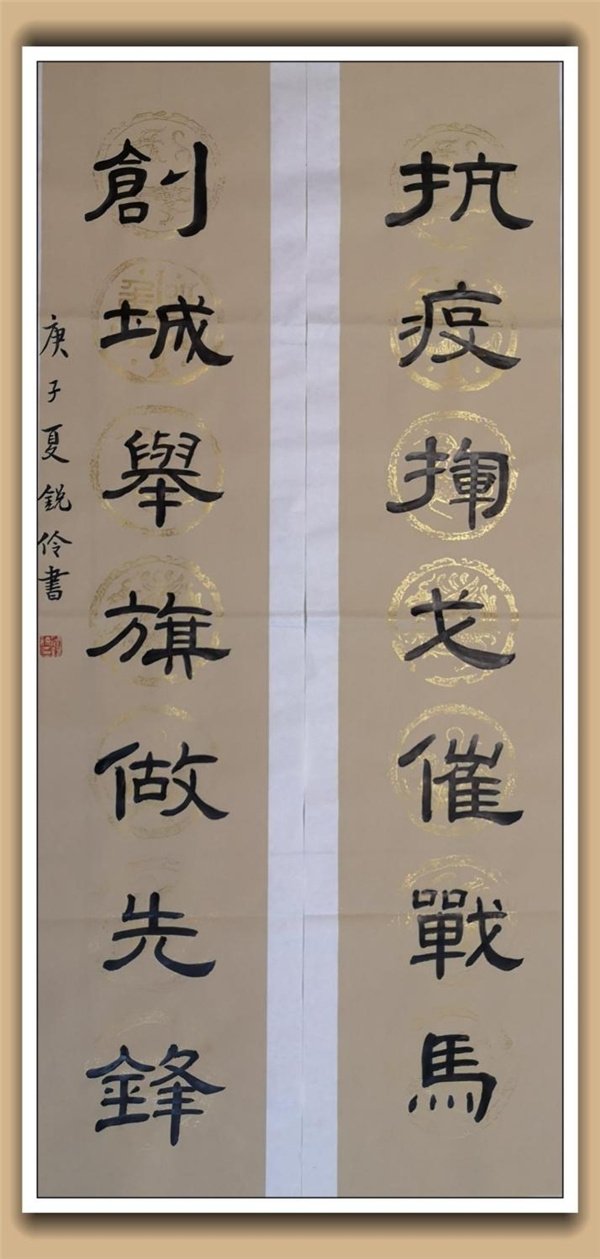 抗疫揮戈催戰馬
創城舉旗做先鋒
庚子夏銳伶書